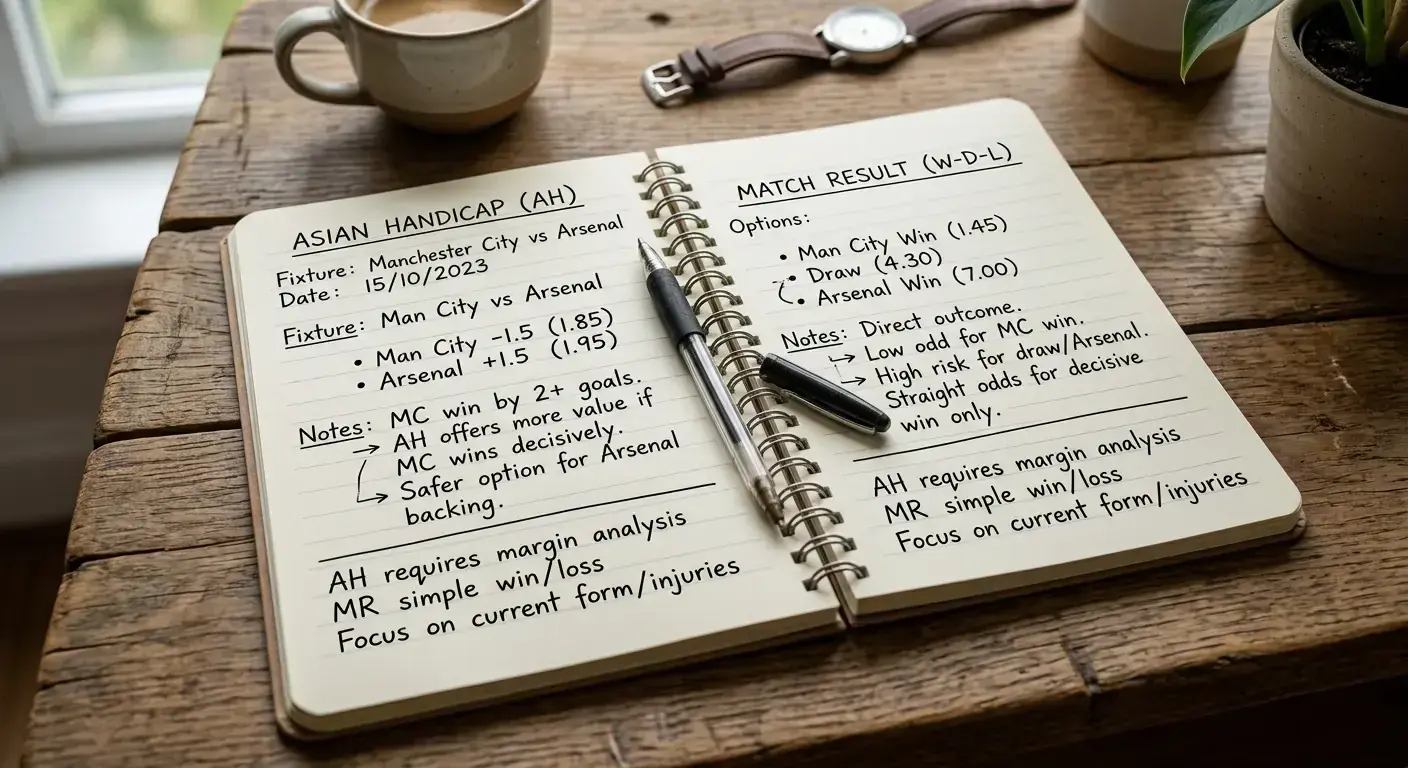 ASIAN HANDICAP (AH)
Fixture: Manchester City vs Arsenal
Date: 15/10/2023
Fixture: Man City vs Arsenal
• Man City -1.5 (1.85)
• Arsenal +1.5 (1.95)
Notes: MC win by 2+ goals.
→ AH offers more value if
MC wins decisively.
→ Safer option for Arsenal
backing.
AH requires margin analysis
MR simple win/loss
Focus on current form/injuries
MATCH RESULT (W-D-L)
Options:
• Man City Win (1.45)
• Draw (4.30)
• Arsenal Win (7.00)
Notes: Direct outcome.
→ Low odd for MC win.
→ High risk for draw/Arsenal.
Straight odds for decisive
win only.
AH requires margin analysis
MR simple win/loss
Focus on current form/injuries